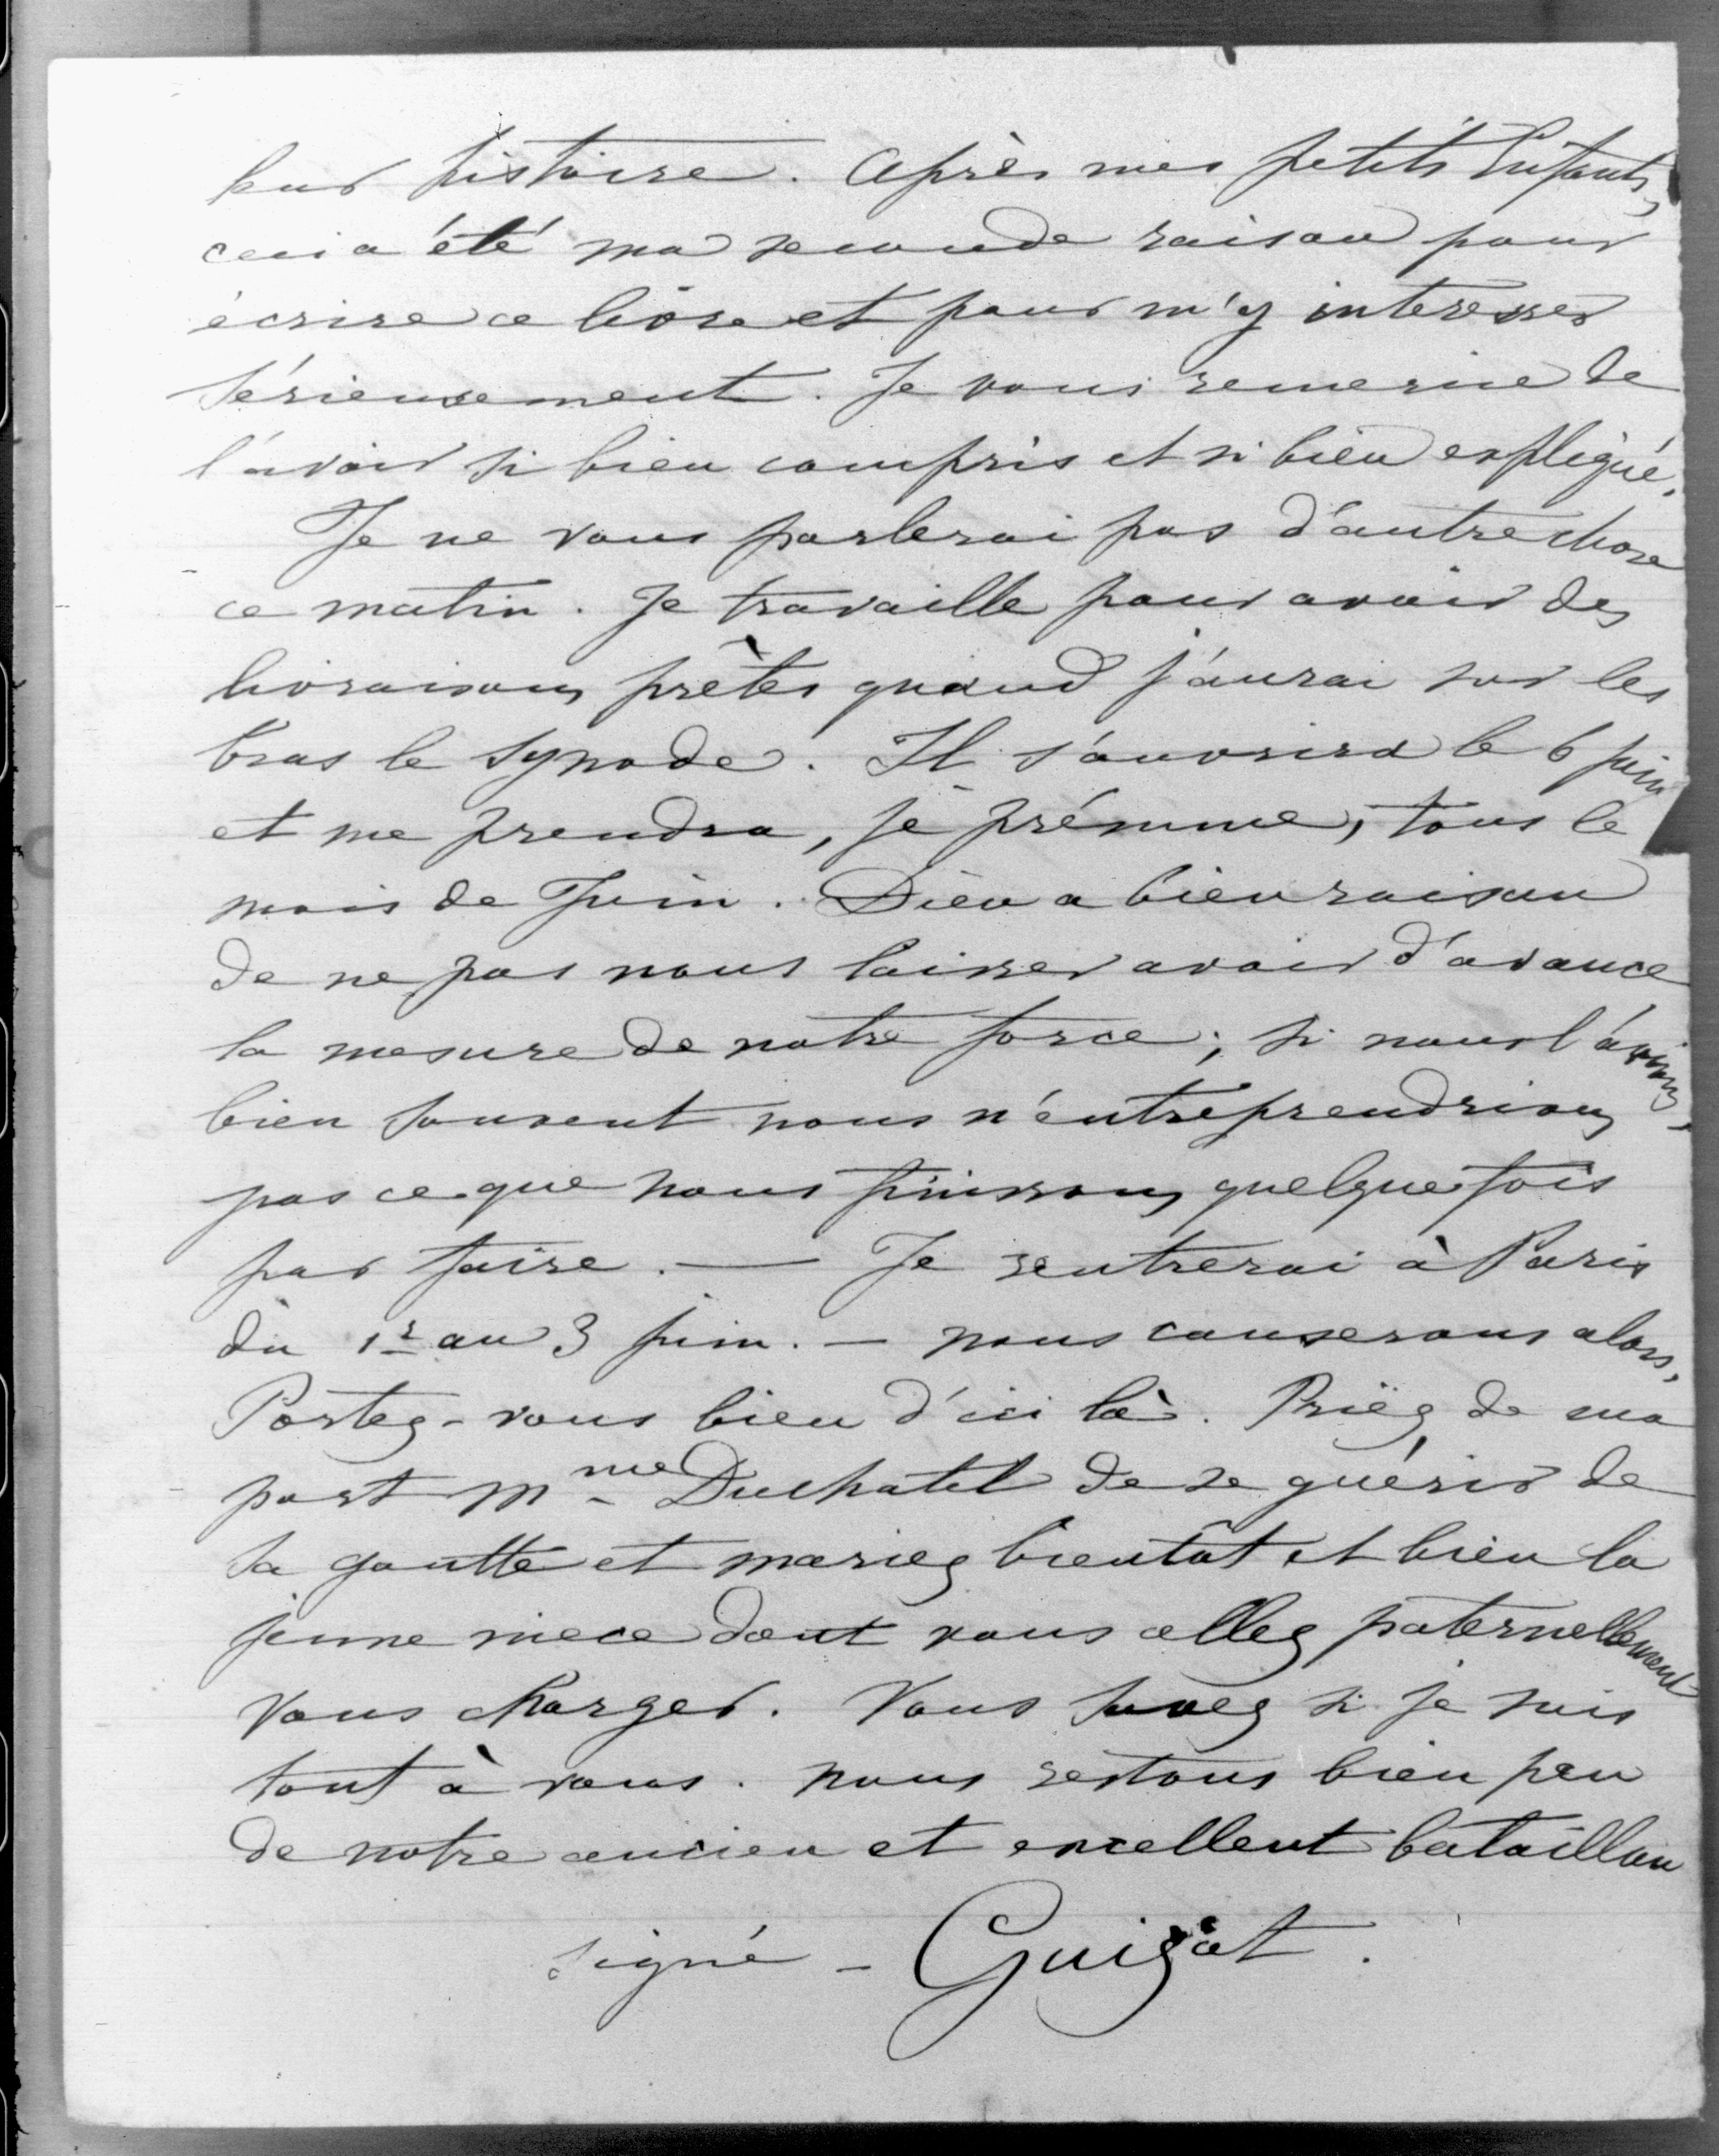 leur histoire. Après mes petits Enfants,
ceci a été ma seconde raison pour
écrire ce livre et pour m'y intéresser
sérieusement. Je vous remercie de
l'avoir si bien compris et si bien expliqué.
Je ne vous parlerai pas d'autre chose
ce matin. Je travaille pour avoir des
livraisons prêtes quand j'aurai sur les
bras le Synode. Il s'ouvrira le 6 juin
et me prendra, je présume, tout le
mois de Juin. Dieu a bien raison
de ne pas nous laisser avoir d'avance
la mesure de notre force; si nous l'avions,
bien souvent nous n'entreprendrions
pas ce que nous finissons quelquefois
par faire. — Je rentrerai à Paris
du 1r au 3 juin. — nous causerons alors,
Portez-vous bien d'ici là. Priez de ma
part Mme Duchatel de se guérir de
sa goutte et mariez bientôt et bien la
jeune niece dont vous allez paternellement
vous charger. Vous savez si je suis
tout à vous. nous restons bien peu
de notre ancien et excellent bataillon
signé - Guizot.